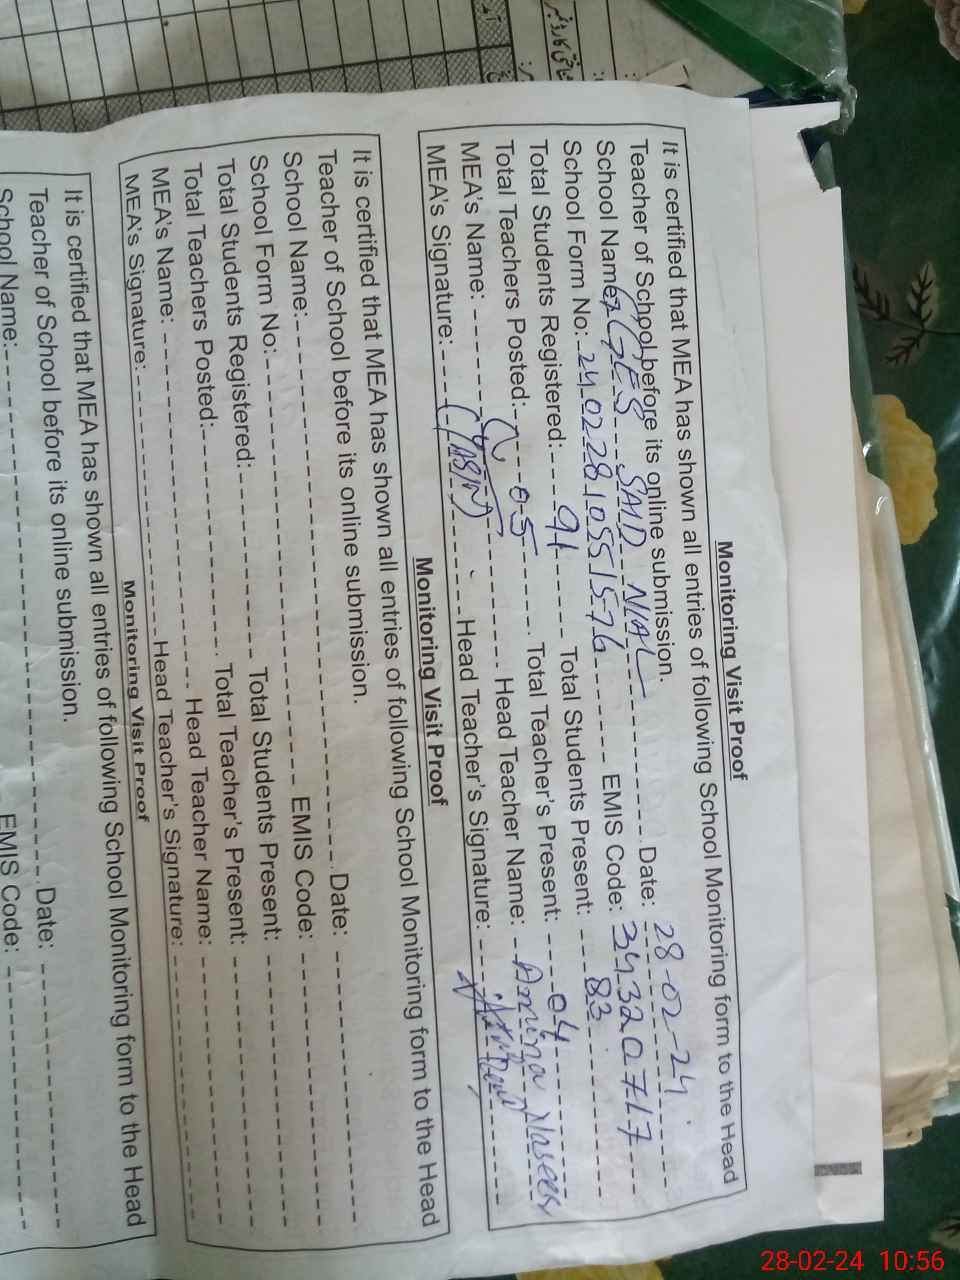 Monitoring Visit Proof
It is certified that MEA has shown all entries of following School Monitoring form to the Head
Teacher of School before its online submission. Date: 28-02-24
School Name: GGES SAID NIAL
School Form No: 24022810551576 EMIS Code: 34320717
Total Students Registered: 91 Total Students Present: 83
Total Teachers Posted: 05 Total Teacher's Present: 04
MEA's Name: Head Teacher Name: Amina Naseer
MEA's Signature: (YASIN) Head Teacher's Signature:
Monitoring Visit Proof
It is certified that MEA has shown all entries of following School Monitoring form to the Head
Teacher of School before its online submission. Date:
School Name: EMIS Code:
School Form No: Total Students Present:
Total Students Registered: Total Teacher's Present:
Total Teachers Posted: Head Teacher Name:
MEA's Name: Head Teacher's Signature:
MEA's Signature:
Monitoring Visit Proof
It is certified that MEA has shown all entries of following School Monitoring form to the Head
Teacher of School before its online submission. Date:
School Name: EMIS Code:
28-02-24 10:56